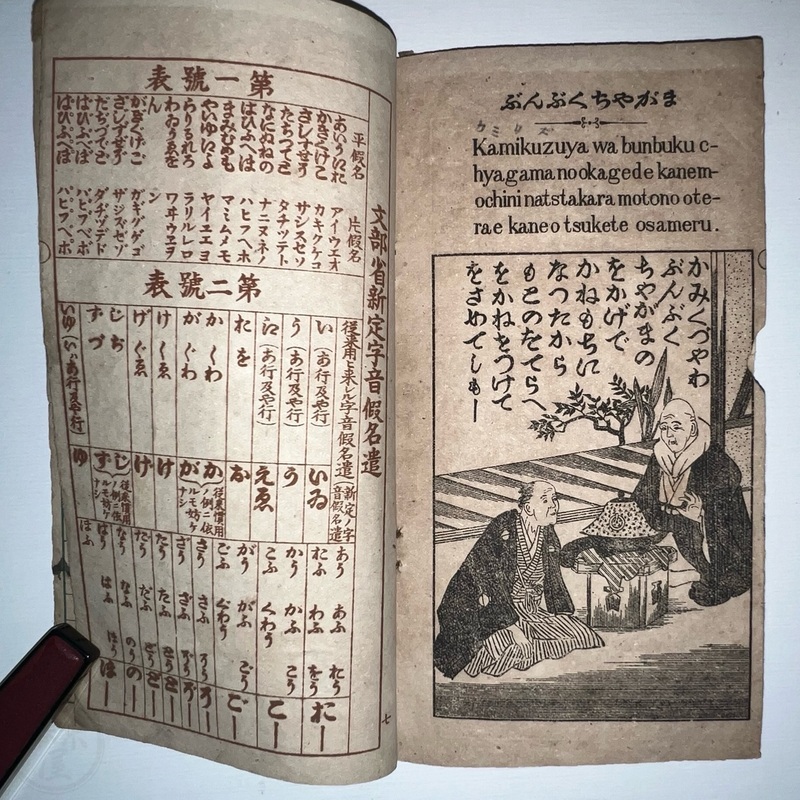 ぶんぶくちやがま
カミクズ
Kamikuzuya wa bunbuku c-
hyagama no okagede kanem-
ochini natstakara motono ote-
rae kaneo tsukete osameru.
かみくづやわ
ぶんぶく
ちやがまの
をかげで
かねもちに
なつたから
もとのおてらへ
をかねをつけて
をさめてしもー
文部省新定字音假名遣
第一號表
平假名
あいうえお
かきくけこ
さしすせそ
たちつてと
なにぬねの
はひふへほ
まみむめも
やいゆいよ
らりるれろ
わゐうゑを
ん
がぎぐげご
ざじずぜぞ
だぢづでど
ばびぶべぼ
ぱぴぷぺぽ
片假名
アイウエオ
カキクケコ
サシスセソ
タチツテト
ナニヌネノ
ハヒフヘホ
マミムメモ
ヤイユエヨ
ラリルレロ
ワヰウヱヲ
ン
ガギグゲゴ
ザジズゼゾ
ダヂヅデド
バビブベボ
パピプペポ
第二號表
從來用ヒ來レル字音假名遣
い(あ行及や行)
う(あ行及や行)
え(あ行及や行)
お を
か くわ
が ぐわ
け くゑ
げ ぐゑ
じ ぢ
ず づ
いゆ(い、あ行及や行)
新定ノ字音假名遣
い ゐ
う
え ゑ
お
か
が
從來慣用ノ例ニ依ルモ妨ケナシ
け
げ
じ
ず
從來慣用ノ例ニ依ルモ妨ケナシ
ゆ
あう あふ おう
おふ わふ をう
おー
かう かふ こう
こふ くわう
こー
がう がふ ごう
ごふ ぐわう
ごー
七